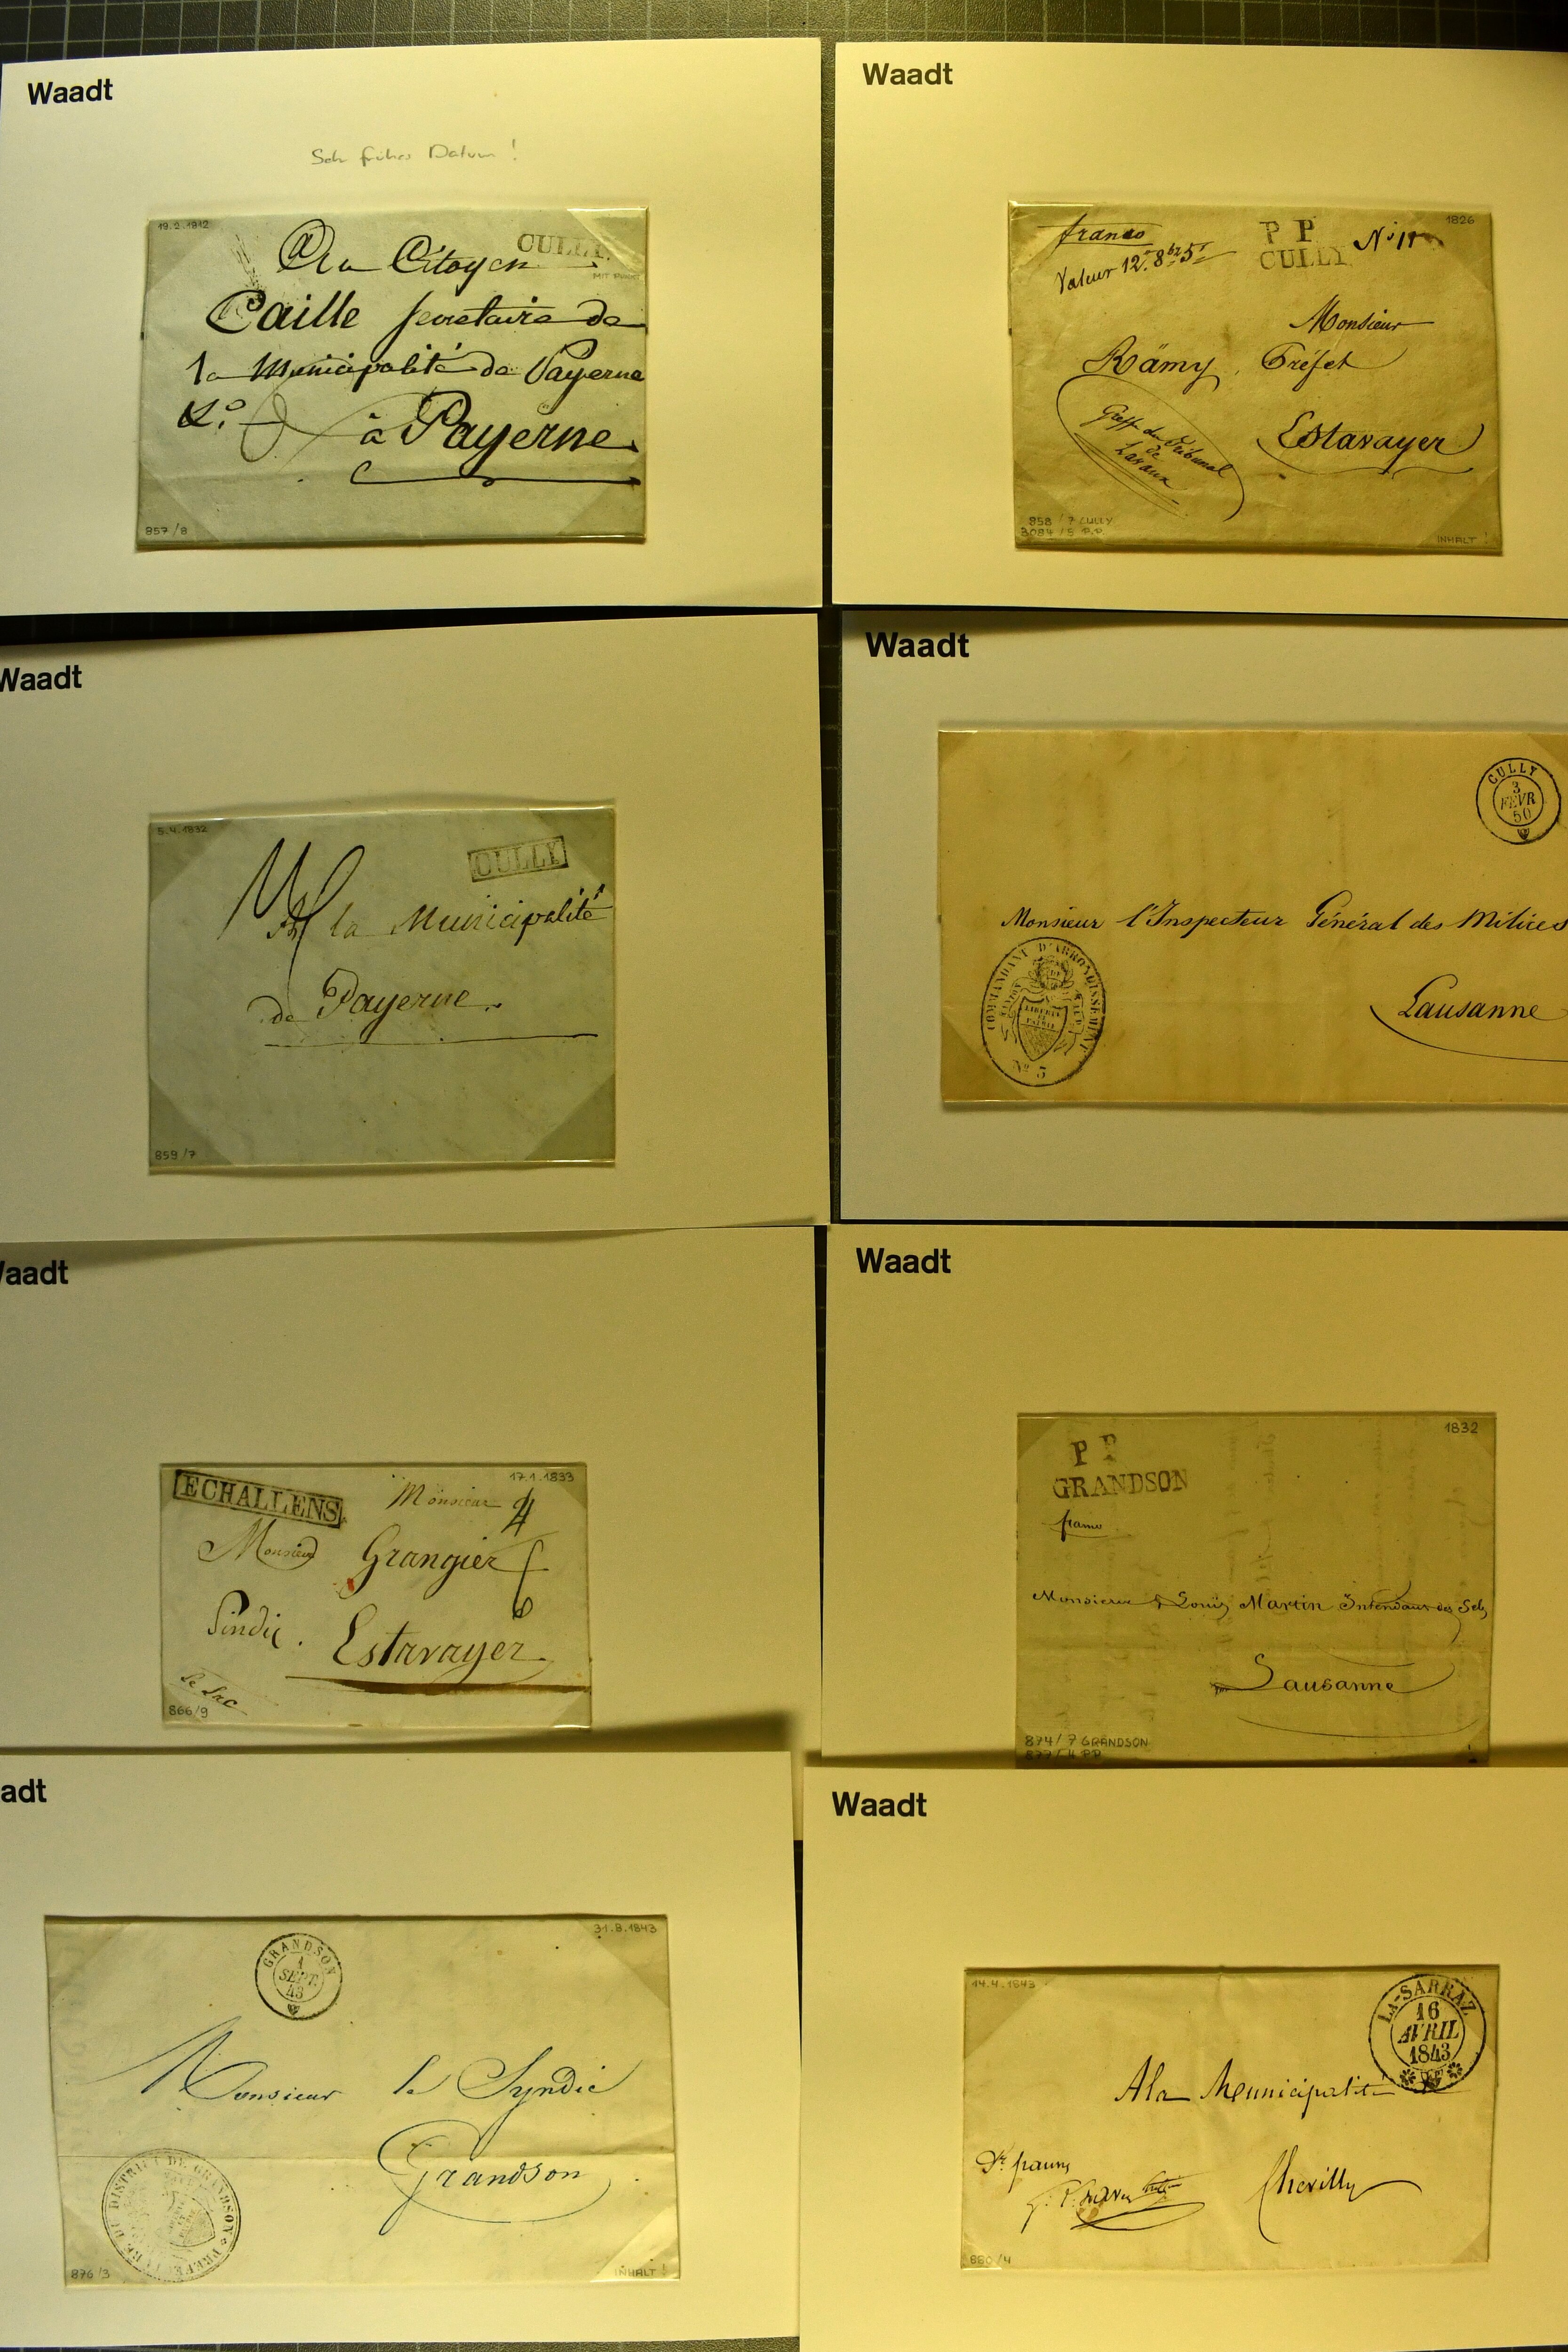 Waadt
Sehr frühes Datum !
19.2.1812
CULLY.
Au Citoyen
Caille secretaire de
la Municipalité de Payerne
à Payerne
857/8
Waadt
1826
franco
P P
CULLY
Valeur 12.
Monsieur
Rämy, Préfet
Estavayer
Greffe du Tribunal
de
Lavaux
858/7 CULLY
3084/5 P.P.
INHALT !
Waadt
5.4.1832
CULLY
A la Municipalité
de Payerne.
859/7
Waadt
CULLY
3
FEVR
50
Monsieur l'Inspecteur Général des Milices
Lausanne
COMMANDANT D'ARRONDISSEMENT
CANTON DE VAUD
LIBERTÉ
ET
PATRIE
No 5
Waadt
17.1.1833
ECHALLENS
Monsieur
4
Monsieur Grangier
Sindic.
Estavayer
le Lac
866/9
Waadt
1832
P P
GRANDSON
franco
Monsieur Louis Martin Intendant des Sels
Lausanne
874/7 GRANDSON
877/4 PP
adt
31.8.1843
GRANDSON
1
SEPT.
43
Monsieur le Syndic
Grandson
PREFECTURE DU DISTRICT DE GRANDSON
876/3
INHALT !
Waadt
14.4.1843
LA-SARRAZ
16
AVRIL
1843
A la Municipalité
Chevilly
880/4